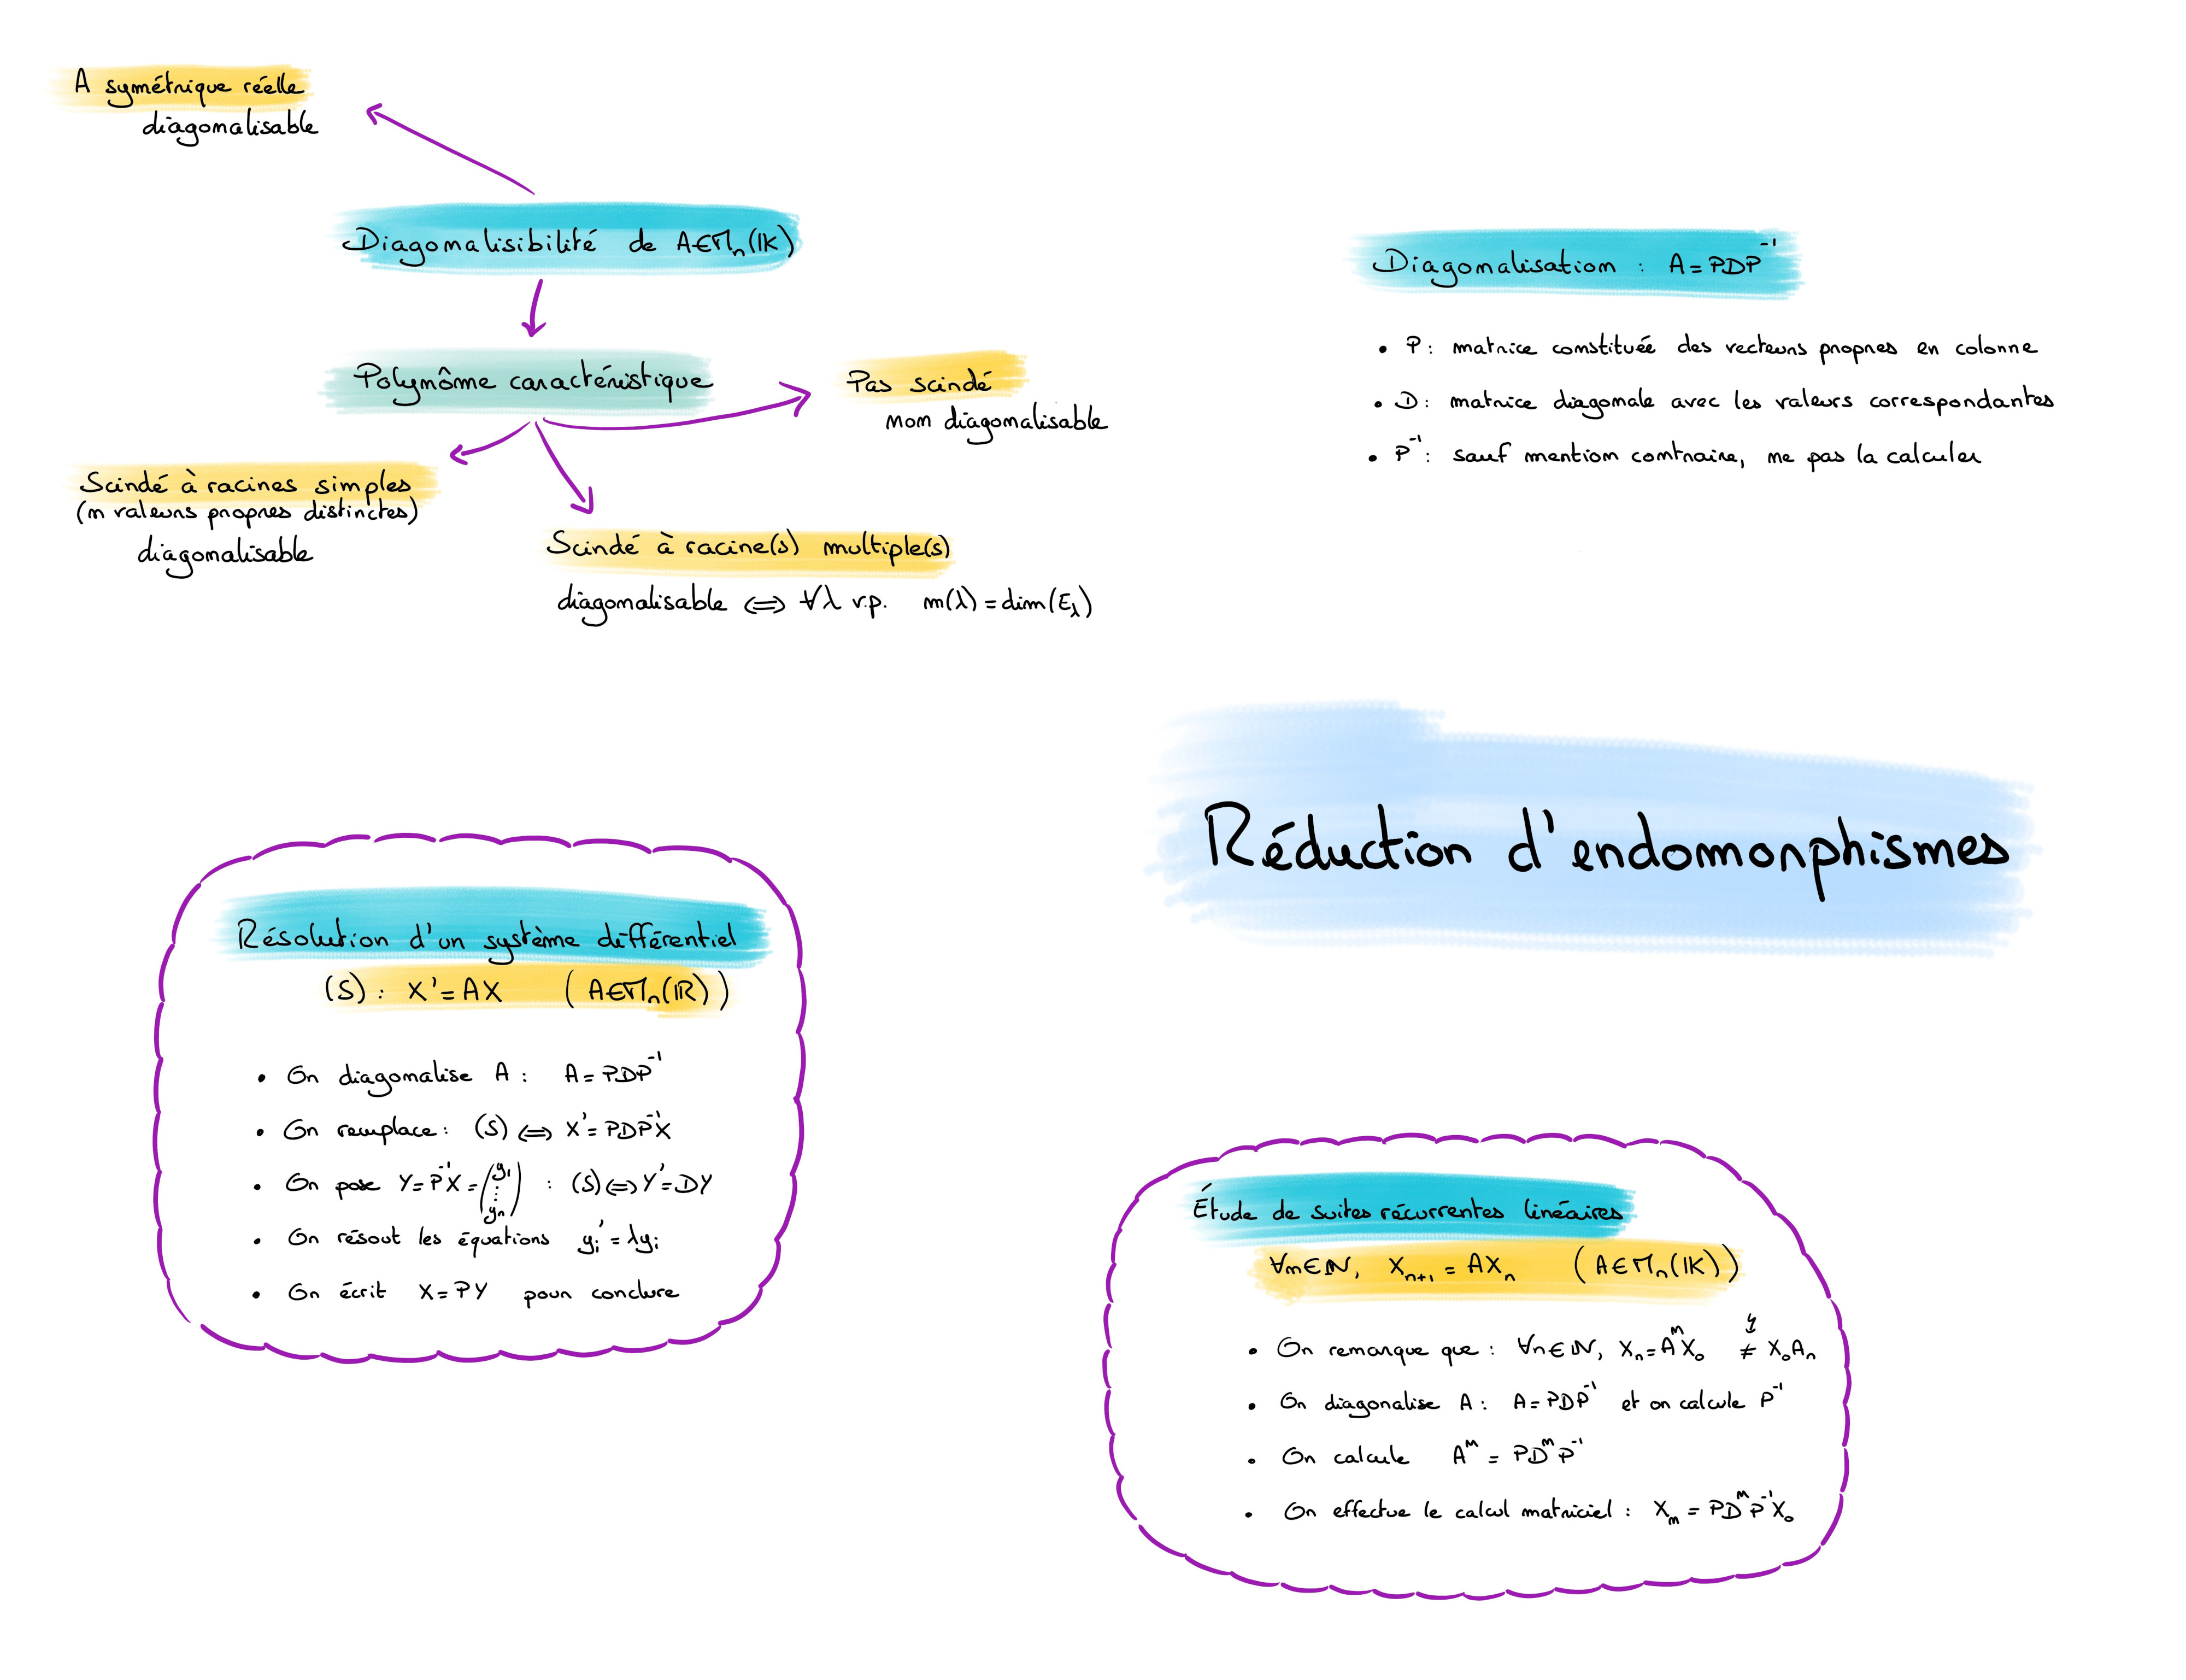 A symétrique réelle
diagonalisable
Diagonalisibilité de A∈Mn(IK)
Polynôme caractéristique
Pas scindé
non diagonalisable
Scindé à racines simples
(n valeurs propres distinctes)
diagonalisable
Scindé à racine(s) multiple(s)
diagonalisable ⟺ ∀λ v.p. m(λ) = dim(Eλ)
Diagonalisation : A = PDP⁻¹
• P : matrice constituée des vecteurs propres en colonne
• D : matrice diagonale avec les valeurs correspondantes
• P⁻¹ : sauf mention contraire, ne pas la calculer
Réduction d'endomorphismes
Résolution d'un système différentiel
(S) : X' = AX (A∈Mn(IR))
• On diagonalise A : A = PDP⁻¹
• On remplace : (S) ⟺ X' = PDP⁻¹X
• On pose Y = P⁻¹X = (y₁ ⋮ yn) : (S) ⟺ Y' = DY
• On résout les équations yᵢ' = λyᵢ
• On écrit X = PY pour conclure
Étude de suites récurrentes linéaires
∀n∈IN, Xn+1 = AXn (A∈Mn(IK))
• On remarque que : ∀n∈IN, Xn = AⁿX₀ ≠ X₀An
• On diagonalise A : A = PDP⁻¹ et on calcule P⁻¹
• On calcule Aⁿ = PDⁿP⁻¹
• On effectue le calcul matriciel : Xn = PDⁿP⁻¹X₀